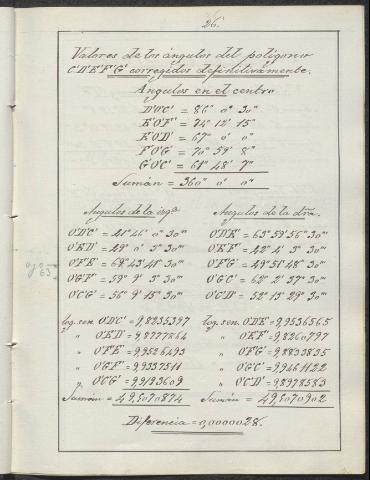 26.
Valores de los ángulos del polígono
C'D'E'F'G' corregidos definitivamente.
Angulos en el centro
D'OC' = 86° 0' 30"
E'OF' = 74° 12' 15"
E'OD' = 67° 0' 0"
F'OG' = 70° 59' 8"
G'OC' = 61° 48' 7"
Sumán = 360° 0' 0"
Angulos de la izqda
Angulos de la dra.
OD'C' = 41° 46' 0" 30'"
OD'E' = 63° 59' 56" 30'"
OE'D' = 49° 0' 3" 30'"
OE'F' = 42° 4' 3" 30'"
OF'E' = 63° 43' 41" 30'"
OF'G' = 49° 51' 48" 30'"
OG'F' = 59° 9' 3" 30'"
OG'C' = 62° 2' 37" 30'"
OC'G' = 56° 9' 15" 30'"
OC'D' = 52° 13' 29" 30'"
log. sen. OD'C' = 9,8235397
log. sen. OD'E' = 9,9536565
" OE'D' = 9,8777864
" OE'F' = 9,8260797
" OF'E' = 9,9526493
" OF'G' = 9,8833835
" OG'F' = 9,9337511
" OG'C' = 9,9461122
" OC'G' = 9,9193609
" OC'D' = 9,8978583
Sumán = 49,5070874
Sumán = 49,5070902
Diferencia = 0,0000028.